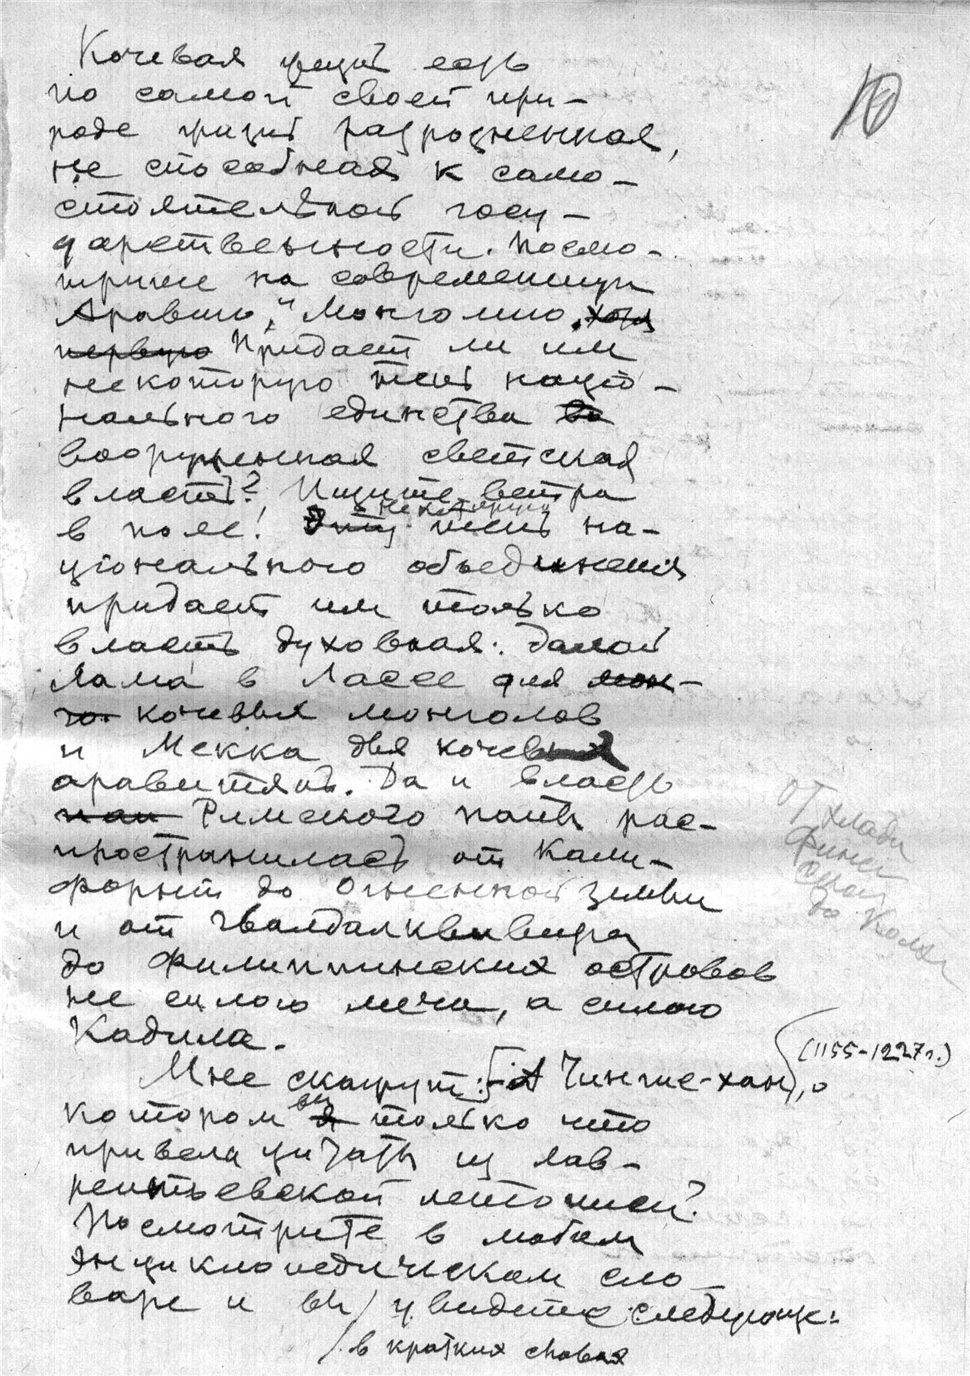 10
Кочевая нація есть
по самой своей при-
роде нація разрозненная,
не способная к само-
стоятельной госу-
дарственности. Посмо-
трите на современную
Аравию, и Монголию.
первую Придает ли им
некоторую тень націо-
нального единства во
вооруженная светская
власть? Ищите ветра
в поле! некоторую тень на-
ціональнаго объединенія
придает им только
власть духовная: Далай
Лама в Лассе для мон-
гол кочевых монголов
и Мекка для кочевых
аравитянъ. Да и власть
пап Римского папы рас-
пространилась от Кали-
форніи до Огненной Земли
и от Гвалдалквивира
до Филиппинских островов
не силою меча, а силою
Кадила.
от
до
Мне скажут: А Чингис-хан, о
(1155-1227 г.)
котором вы я только что
привели цитаты из лав-
рентьевской летописи?
Посмотрите в любом
энциклопедическом сло-
варе и вы увидите следующее:
в кратких словах